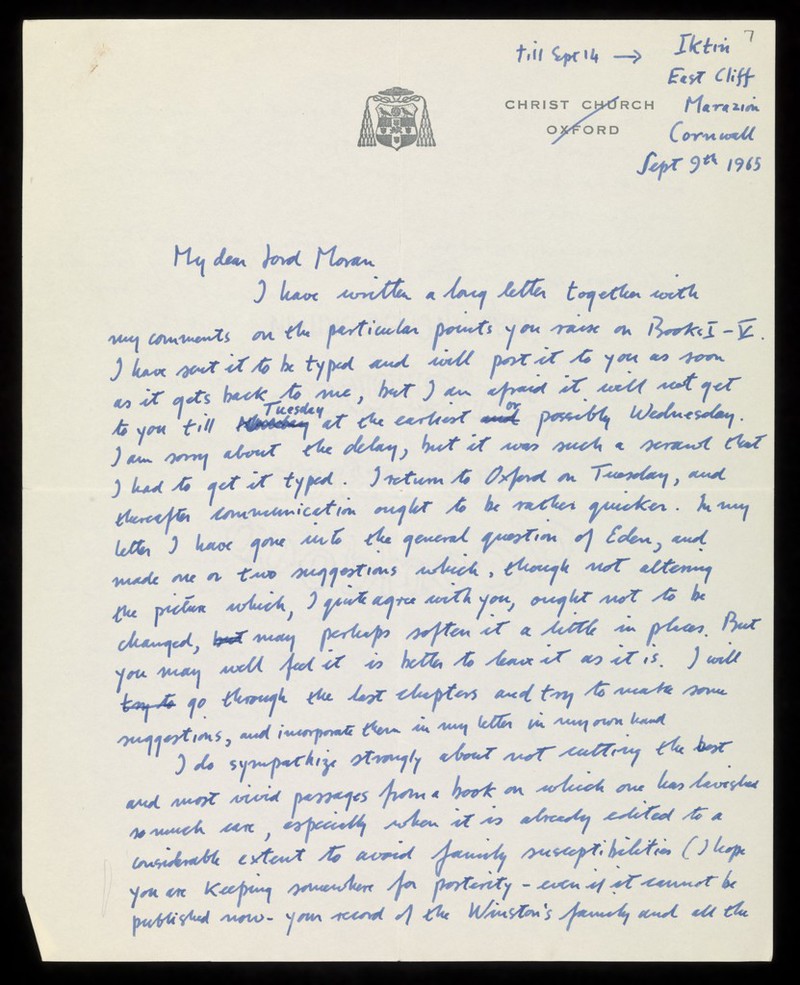 7
till Sept 14 → Iktin
East Cliff
CHRIST CHURCH Marazion
OXFORD Cornwall
Sept 9th 1965
My dear Lord Moran
I have written a long letter together with
my comments on the particular points you raise on Books I - V.
I have sent it to be typed and will post it to you as soon
as it gets back to me, but I am afraid it will not get
to you till Tuesday at the earliest or possibly Wednesday.
I am sorry about the delay, but it was such a scrawl that
I had to get it typed. I return to Oxford on Tuesday, and
thereafter communication ought to be rather quicker. In my
letter I have gone into the general question of Eden, and
made one or two suggestions which, though not altering
the picture which, I quite agree with you, ought not to be
changed, but may perhaps soften it a little in places. But
you may well feel it is better to leave it as it is. I will
try to go through the last chapters and try to make some
suggestions, and incorporate them in my letter in my own hand
I do sympathize strongly about not cutting the best
and most vivid passages from a book on which one has lavished
so much care, especially when it is already edited to a
considerable extent to avoid family susceptibilities (I hope
you are keeping somewhere for posterity - even if it cannot be
published now - your record of the Winston's family and all the